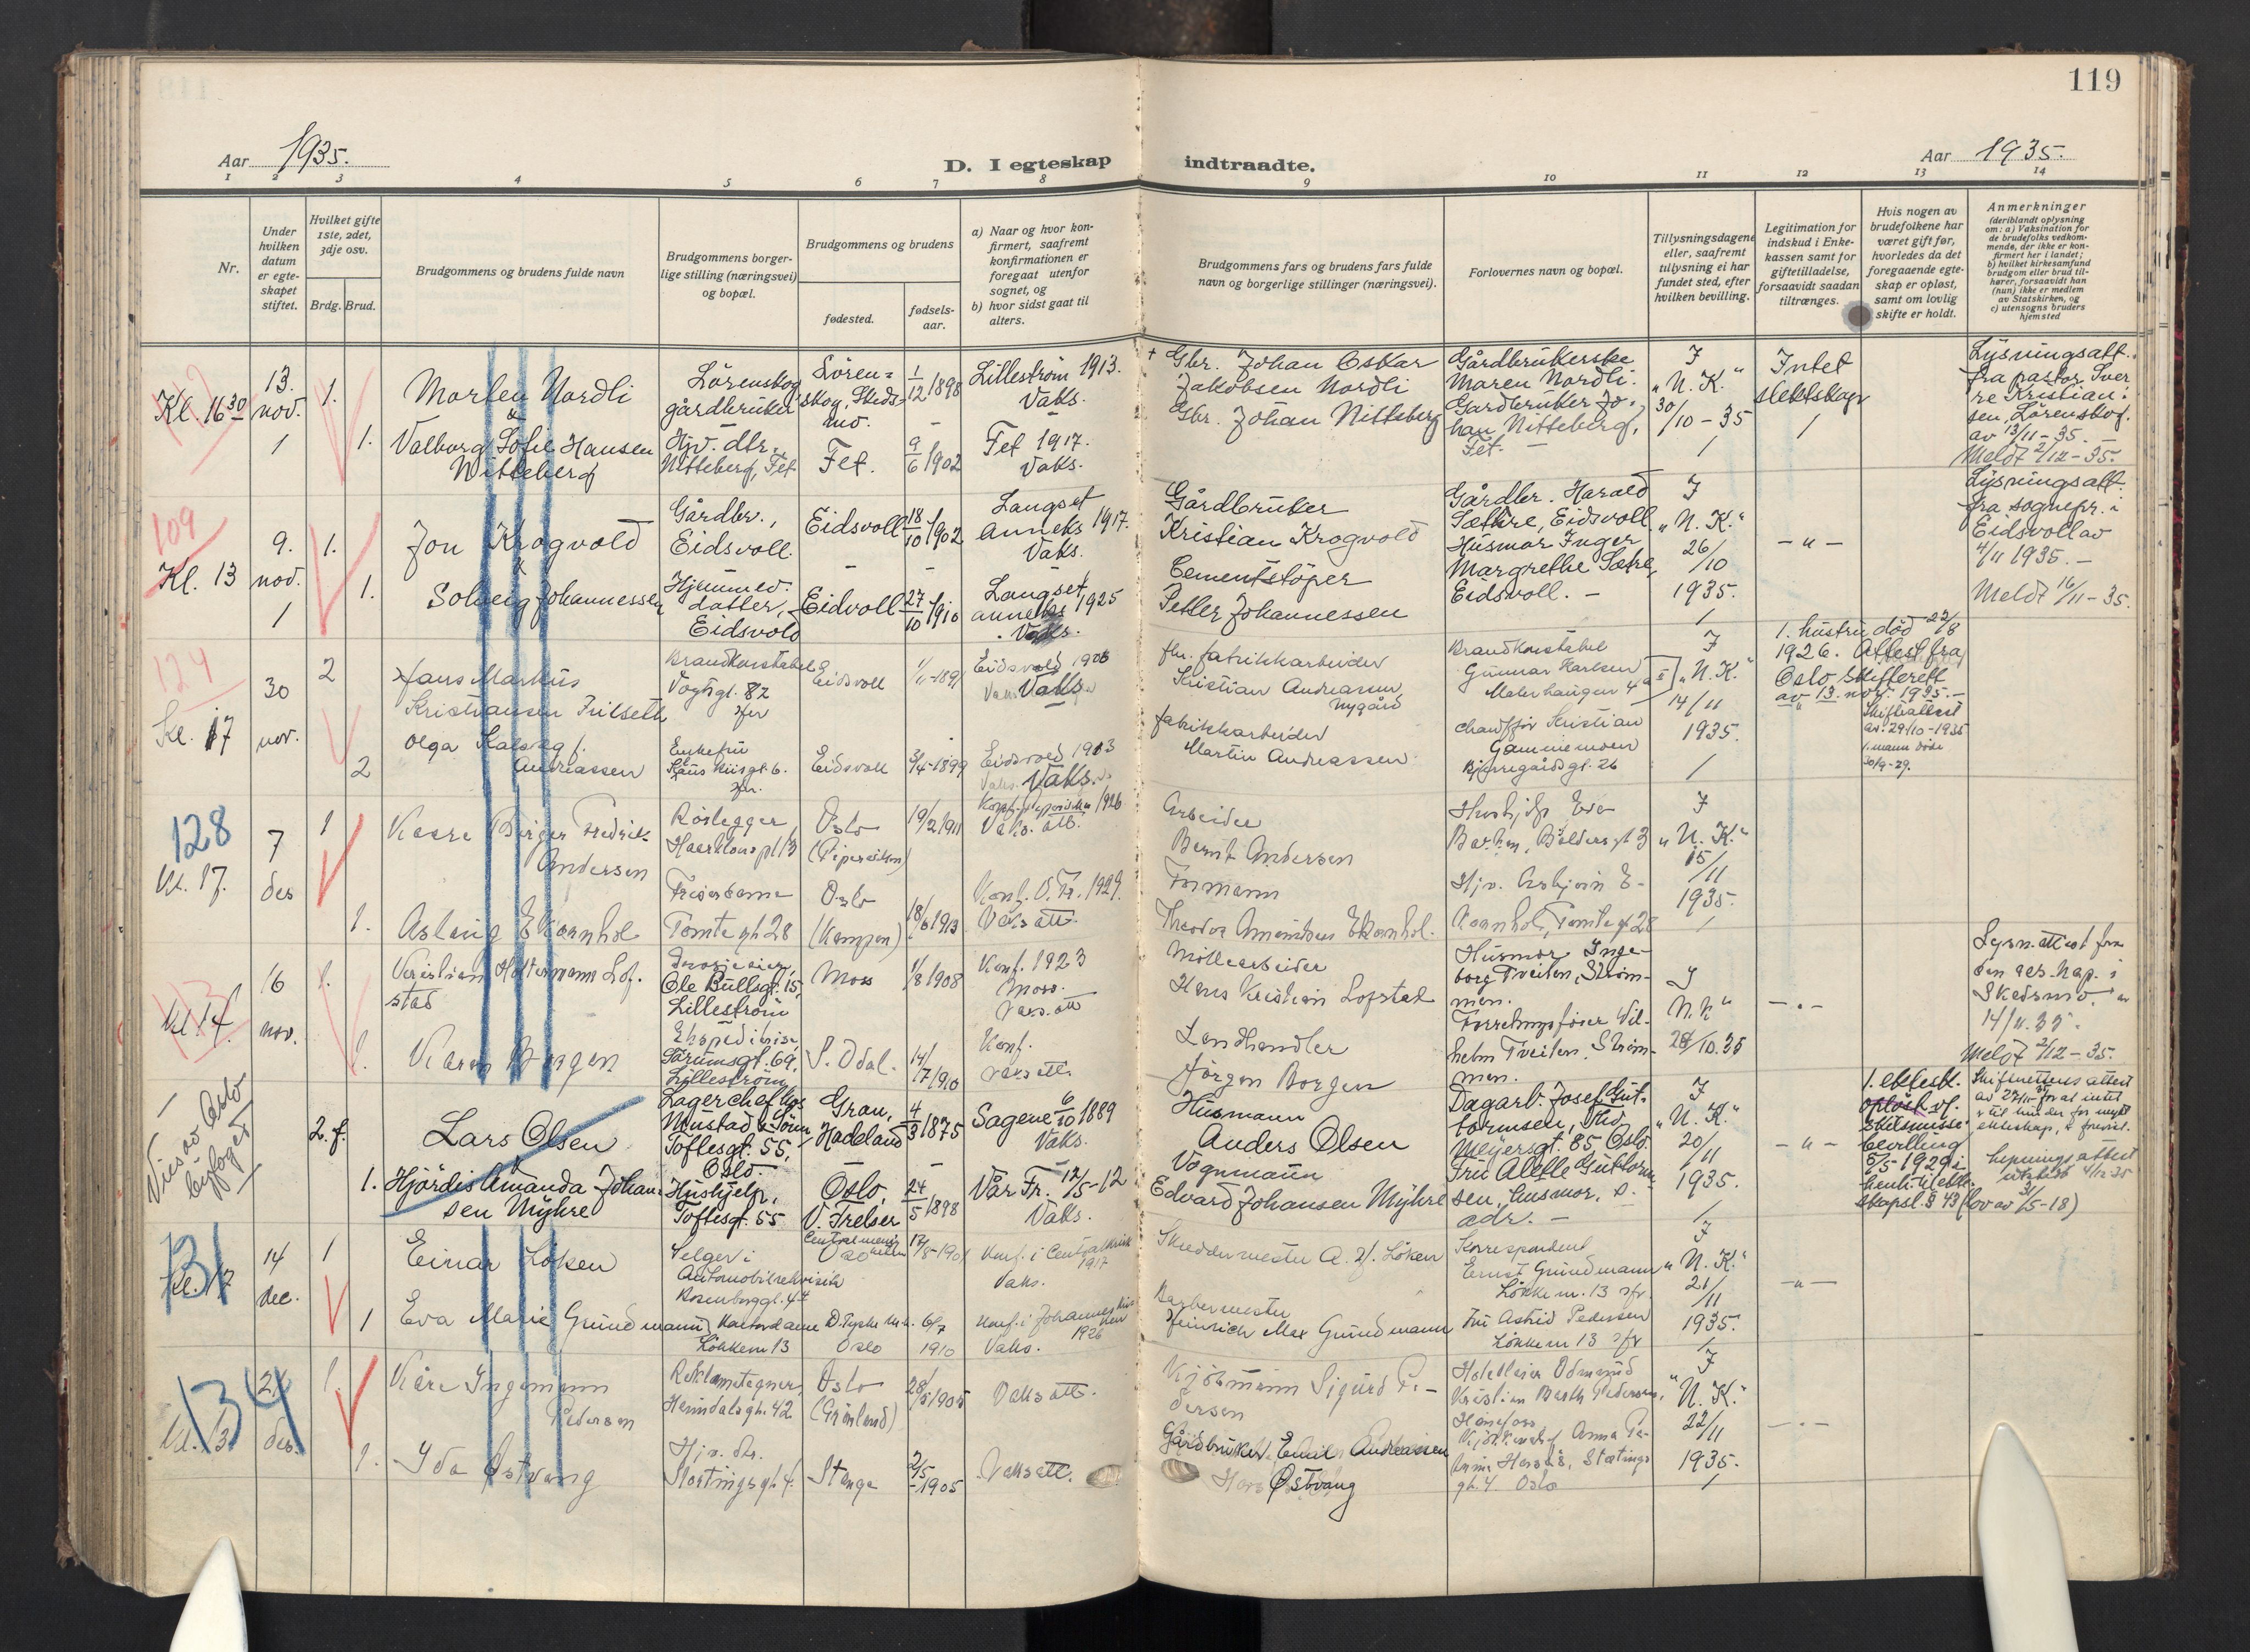 119
Aar 1935.
D. I egteskap indtraadte.
Aar 1935.
1 2 3 4 5 6 7 8 9 10 11 12 13 14
Nr.
Under hvilken datum er egteskapet stiftet.
Hvilket gifte 1ste, 2det, 3dje osv.
Brdg. Brud.
Brudgommens og brudens fulde navn
Brudgommens borgerlige stilling (næringsvei) og bopæl.
Brudgommens og brudens
fødested.
fødselsaar.
a) Naar og hvor konfirmert, saafremt konfirmationen er foregaat utenfor sognet, og
b) hvor sidst gaat til alters.
Brudgommens fars og brudens fars fulde navn og borgerlige stillinger (næringsvei).
Forlovernes navn og bopæl.
Tillysningsdagene eller, saafremt tillysning ei har fundet sted, efter hvilken bevilling.
Legitimation for indskud i Enkekassen samt for giftetilladelse, forsaavidt saadan tiltrænges.
Hvis nogen av brudefolkene har været gift før, hvorledes da det foregaaende egteskap er opløst, samt om lovlig skifte er holdt.
Anmerkninger (deriblandt oplysning om: a) Vaksination for de brudefolks vedkommende, der ikke er konfirmert her i landet; b) hvilket kirkesamfund brudgom eller brud tilhører, forsaavidt han (hun) ikke er medlem av Statskirken, og c) utensogns bruders hjemsted
Kl. 16 30
13. nov.
1.
Morten Nordli
&
Lörenskog
gårdbruker
Lörenskog, Skedsmo.
1/12 1898
Lilleström 1913.
Vaks.
Gbr. Johan Oskar
Jakobsen Nordli
Gårdbrukerske
Maren Nordli.
I
"N. K."
30/10-35
Intet
slektskap
Lysningsatt.
fra pastor Sverre Kristiansen, Lörenskog.
av 13/11-35.
Meldt 2/12-35.
1.
Valborg Sofie Hansen
Nitteberg
Hjv. dtr.
Nitteberg, Fet
Fet.
9/6 1902
Fet 1917.
Vaks.
Gbr. Johan Nitteberg
Gardbruker Johan Nitteberg,
Fet.
109
Kl. 13
9. nov.
1.
Jon Krogvold
&
Gårdbr.,
Eidsvoll.
Eidsvoll
18/10 1902
Langset
Anneks 1917.
Vaks.
Gårdbruker
Kristian Krogvold
Gårdbr. Harald
Sætre, Eidsvoll
Husmor Inger
Margrethe Sætre,
Eidsvoll.
I
"N. K."
26/10
1935.
- " -
Lysningsatt.
fra sognepr. i
Eidsvoll av
4/11 1935.
Meldt 16/11-35.
1.
Solveig Johannessen
Hjemmev.
datter,
Eidsvold
Eidvoll
27/10 1910
Langset
anneks 1925
Vaks.
Cementstöper
Petter Johannessen
124
Kl. 17
30 nov.
2
Hans Markus
Kristiansen Trilseth
Brandkonstabel
Vogtsgt. 87
Eidsvoll
1/11-1891
Eidsvold 1906
Vaks
fhv. fabrikkarbeider
Kristian Andreassen,
Nygård
Brandkonstabel
Gunnar Karlsen
Malerhaugen 4
I
"N. K."
14/11
1935.
1. hustru död 22/8
1926. Attest fra
Oslo Skifterett
av 13. nov. 1935.
Skifteattest
av 29/10-1935
1. mann döde
30/9-29.
2
Olga f.
Andreassen
Enkefru
Eidsvoll
3/4-1899
Eidsvold 1913
Vaks.
fabrikkarbeider
Martin Andreassen
Chaufför Kristian
Gammemoen
Bjerregårdsgt. 26
128
Kl. 17.
7 des
1
Kaare Birger Fredrik
Andersen
Rörlegger
Oslo
(Pipervikken)
19/2 1911
Konf. Pipervikken 1926
Vaks. att.
Arbeider
Bernt Andersen
Baldersgt 3
I
"N. K."
15/11
1935.
1.
Aslaug Ekornhol
Tomtegt 28
Oslo
(Kampen)
1913
Konf. V. Fr. 1929.
Vaks att.
Formann
Theodor Ekornhol.
Tomtegt 28
Kl. 14.
16 nov.
1.
Kristian Lofstad
Ole Bullsgt. 15,
Lilleström
Moss
1/8 1908
Konf. 1923
Moss.
Vaks. att
Möllearbeider
Hans Kristian Lofstad
Husmor Ingeborg Tveiten, Strömmen.
I
N. K"
28/10.35
Lysn. attest fra
den res. kap. i
Skedsmo.
14/11.35.
Meldt 2/12-35.
1.
Karen Borgen
Ekspeditrise,
Sørumsgt. 69,
Lilleström
S. Odal.
14/7 1910
Konf.
Vaks att.
Landhandler
Jörgen Borgen
Forretningsförer Vilhelm Tveiten, Strömmen.
Vies av Oslo
byfoged
2. f.
Lars Olsen
&
Lagerchef hos
Mustad & Sönn
Toftesgt. 55,
Oslo.
Gran,
Hadeland
4/3 1875
Sagene 6/10 1889
Vaks.
Husmann
Anders Olsen
Dagarb. Josef Guttormsen, Thv.
Meyersgt. 85 Oslo.
I
"N. K."
20/11
1935.
- " -
1. ekteskap
oplöst vf.
skilsmissebevilling
6/5-1929 i
henh. til ekteskapsl. § 43 (lov av 31/5-18)
Skifterettens attest
av 27/11-35 for at intet
er til hinder for nytt
ekteskap, er forevist.
Lysnings attest
utstedt 4/12 35
1.
Hjördis Amanda Johansen Myhre
Hushjelp,
Toftesgt. 55
Oslo,
V. Frelser
24/5 1898
Vår Fr. 12/5-12
Vaks.
Vognmann
Edvard Johansen Myhre
Fru Alette Guttormsen, husmor, s.
adr.
131
Kl. 17
14 dec.
1
Einar Löken
Selger i
Automobilrekvisita
Rosenborggt. 4
Oslo
Konf. i Centralkirk
1917
Vaks.
Skreddermester A. H. Löken
Korrespondent
Ernst Grundmann
Lökkevn. 13
I
"N. K."
21/11
1935.
- " -
1
Eva Marie Grundmann
Kontordame
Lökkevn 13
D. Tyske
Oslo
6/7
1910
Konf. i Johannes kirken
1926
Vaks.
Barbermester
Heinrich Max Grundmann
Fru Astrid Pedersen
Lökkevn 13
134
Kl. 13
21 des.
1.
Kåre Ingemann
Pedersen
Reklametegner,
Heimdalsgt. 42
Oslo
(Grönland)
28/5 1905
Vaks att.
Kjöbmann Sigurd Pedersen
Kristian Barth Pedersen,
Hönefoss
I
"N. K."
22/11
1935.
1.
Ida Östvang
Hjv. dtr.
Stortingsgt 4.
Stange
2/5
-1905
Vaks att.
Gårdbruker Emil Andreassen
Östvang
gt. 4 Oslo